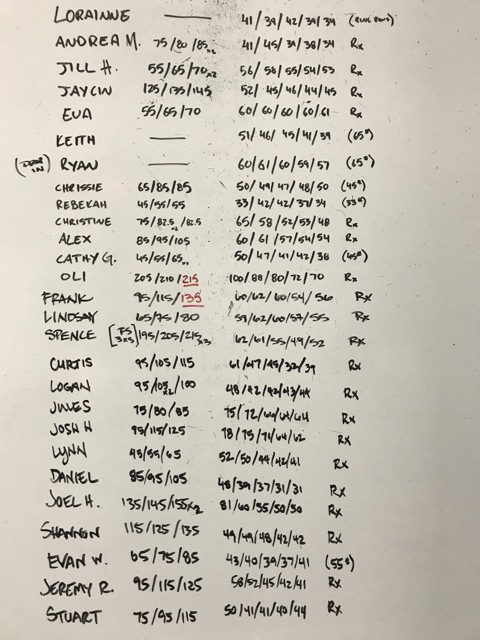 LORAINNE — 41/39/42/39/34
ANDREA M. 75/80/85x2 41/45/39/38/34 Rx
JILL H. 55/65/70x2 56/56/55/54/53 Rx
JAYCIN 125/135/145 52/45/46/44/45 Rx
EVA 55/65/70 60/60/60/60/61 Rx
KEITH — 51/46/45/41/39 (65#)
RYAN — 60/61/60/59/57 (65#)
CHRISSIE 65/85/85 50/49/47/48/50 (45#)
REBEKAH 45/55/55 33/42/42/37/34 (33#)
CHRISTINE 75/82.5/82.5 65/58/52/53/48 Rx
ALEX 85/95/105 60/61/57/54/54 Rx
CATHY G. 45/55/65 50/47/41/42/38 (45#)
OLI 205/210/215 100/88/80/72/70 Rx
FRANK 95/115/135 60/62/60/54/56 Rx
LINDSAY 65/75/80 59/62/60/57/55 Rx
SPENCE [FS 3x3] 195/205/215x3 62/61/55/49/52 Rx
CURTIS 95/105/115 61/47/45/32/39 Rx
LOGAN 95/105x2/100 48/42/42/43/44 Rx
JULES 75/80/85 75/72/64/64/64 Rx
JOSH H 95/115/125 78/75/74/64/62 Rx
LYNN 45/55/65 52/50/44/42/41 Rx
DANIEL 85/95/105 48/39/37/31/31 Rx
JOEL H. 135/145/155x2 81/60/55/50/50 Rx
SHANNON 115/125/135 49/49/48/42/42 Rx
EVAN W. 65/75/85 43/40/39/37/41 (55#)
JEREMY R. 95/115/125 58/52/45/42/41 Rx
STUART 75/95/115 50/41/41/40/44 Rx